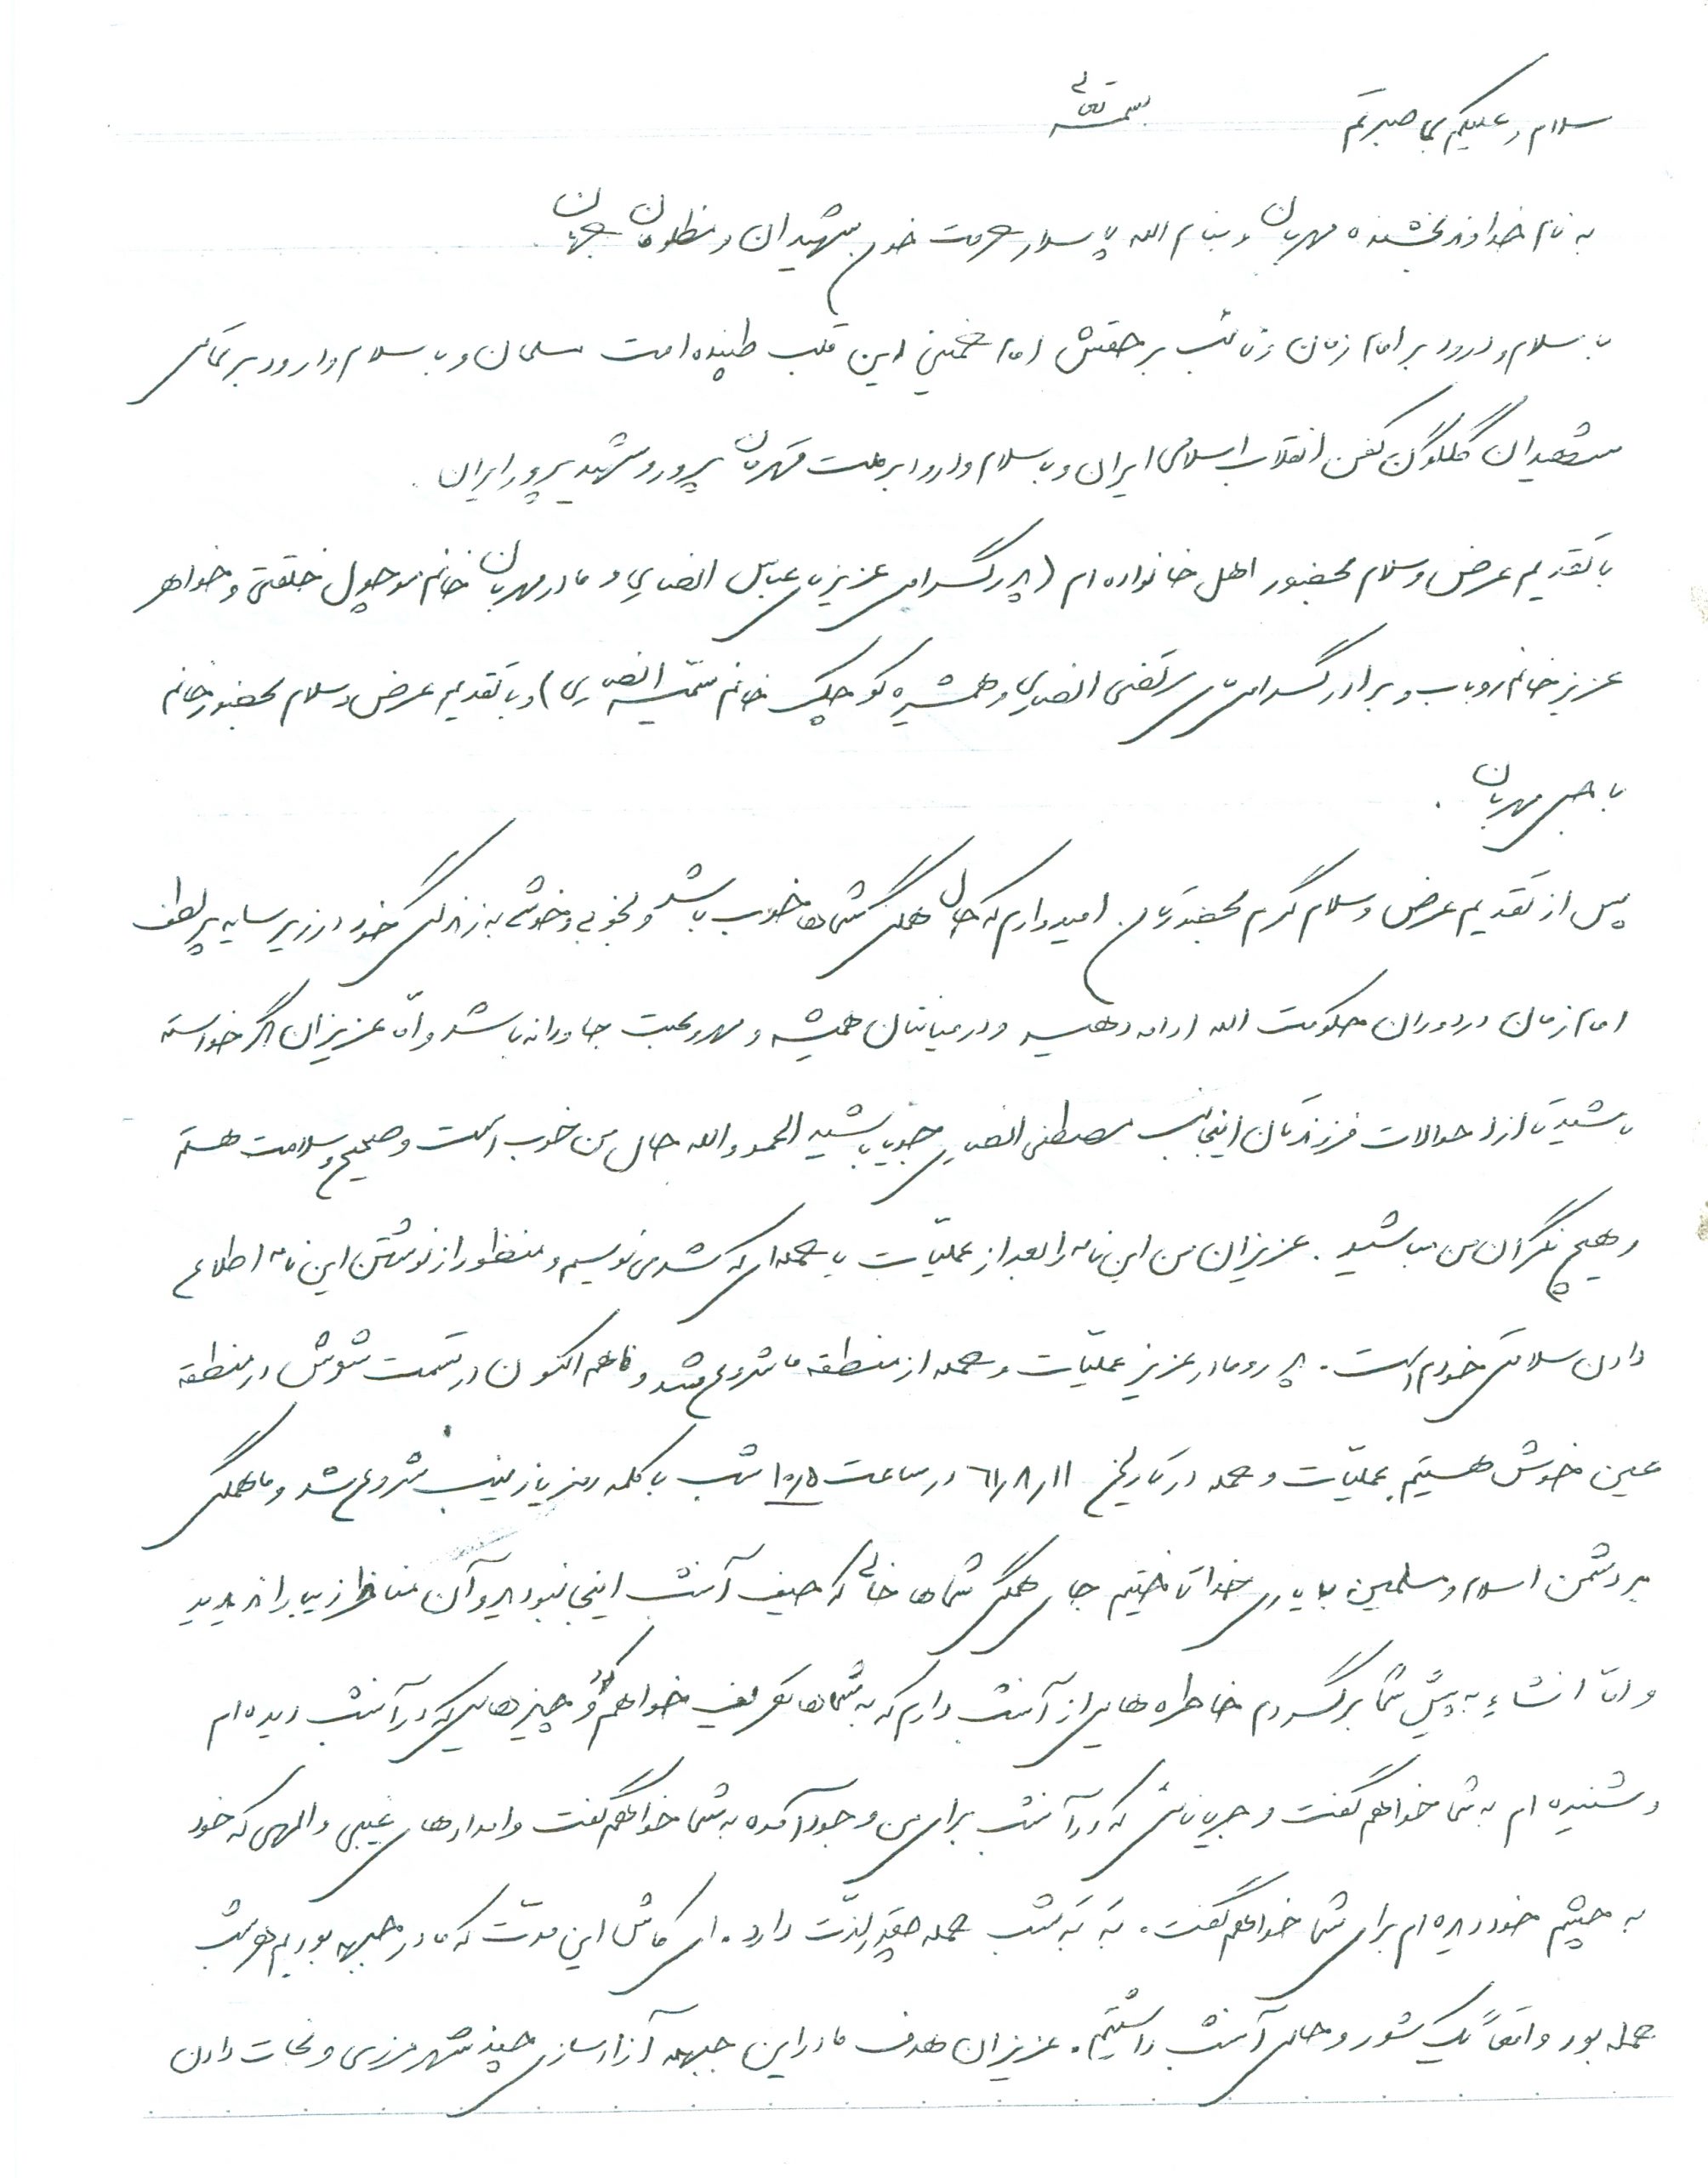 بسمه تعالی
سلام علیکم بما صبرتم
به نام خداوند بخشنده مهربان و بنام الله پاسدار حرمت خون شهیدان و مظلومان جهان
با سلام و درود بر امام زمان و نائب برحقش امام خمینی این قلب طپنده امت مسلمان و با سلام و درود بر تمامی
شهیدان گلگون کفن انقلاب اسلامی ایران و با سلام و درود بر ملت قهرمان پرور و شهید پرور ایران.
با تقدیم عرض و سلام بحضور اهل خانواده ام (پدر گرامی عزیز عباس انصاری و مادر مهربان خانم موچول خلقتی و خواهر
عزیز خانم روباب و برادر گرامی مرتضی انصاری و همشیره کوچک خانم سمیه انصاری) و با تقدیم عرض و سلام بحضور خانم
باجی مهربان.
پس از تقدیم عرض و سلام گرم بحضورتان. امیدوارم که حال همگی شماها خوب باشد و بخوبی و خوشی به زندگی خود در زیر سایه پر لطف
امام زمان در دوران حکومت الله ادامه دهید و در میانتان همیشه و مهر و محبت جاودانه باشد و اما عزیزان اگر خواسته
باشید تا از احوالات فرزندتان اینجانب مصطفی انصاری جویا باشید الحمد والله حال من خوب است و صحیح و سلامت هستم
و هیچ نگران من مباشید. عزیزان من این نامه را بعد از عملیات یا حمله ای که شد می نویسم و منظور از نوشتن این نامه اطلاع
دادن سلامتی خودم است. پدر و مادر عزیز عملیات و حمله از منطقه ما شروع شد و ما هم اکنون در قسمت شوش در منطقه
عین خوش هستیم. عملیات و حمله در تاریخ ۶۱٫۸٫۱۱ در ساعت ۱۰٫۵ شب با کلمه رمز یا زینب شروع شد و ما همگی
بر دشمن اسلام و مسلمین با یاری خدا تاختیم جای همگی شماها خالی که حیف آنشب اینجا نبودید و آن مناظر زیبا را ندیدید
و اما انشاء به پیش شما برگردم خاطره هایی از آنشب دارم که به شماها تعریف خواهم کرد و چیزهایی که در آنشب دیده ام
و شنیده ام به شما خواهم گفت و جریاناتی که در آنشب برای من وجود آمده به شما خواهم گفت و امدادهای غیبی و الهی که خود
به چشم خود دیده ام برای شما خواهم گفت. به به شب حمله چقدر لذت دارد. ای کاش این مدت که ما در جبهه بودیم هر شب
حمله بود واقعاً یک شور و حالی آنشب داشتیم. عزیزان هدف ما در این جبهه آزادسازی چند شهر مرزی و نجات دادن